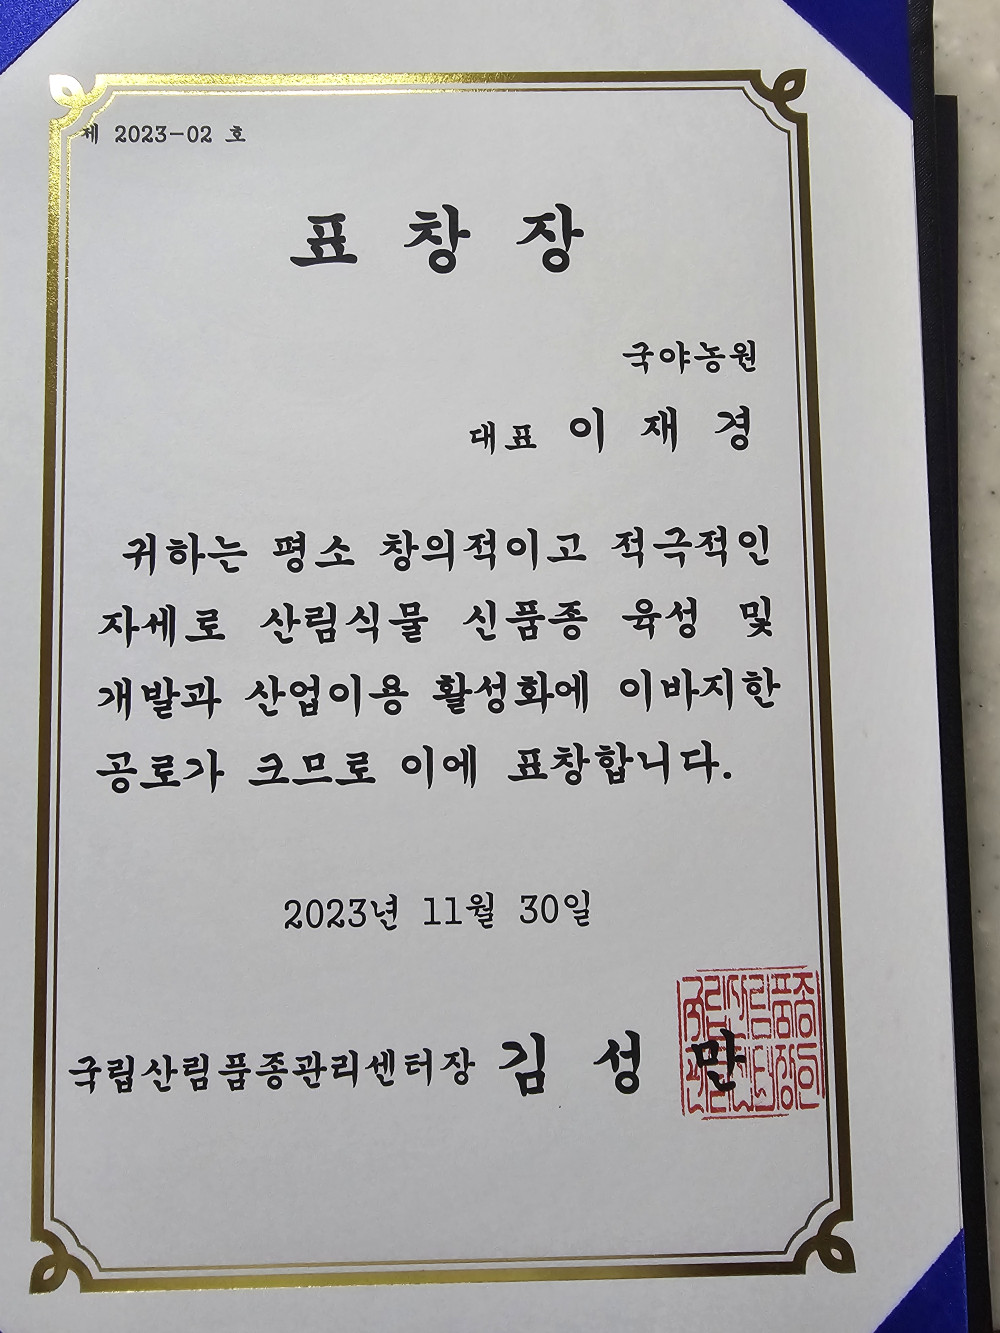 제 2023-02 호
표 창 장
국야농원
대표 이 재 경
귀하는 평소 창의적이고 적극적인
자세로 산림식물 신품종 육성 및
개발과 산업이용 활성화에 이바지한
공로가 크므로 이에 표창합니다.
2023년 11월 30일
국립산림품종관리센터장 김 성 만
국립산림품종